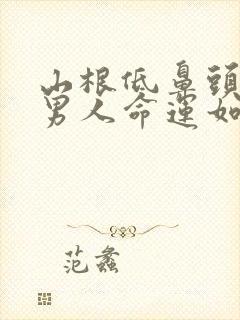 山根低鼻頭
男人命運如
范蠡